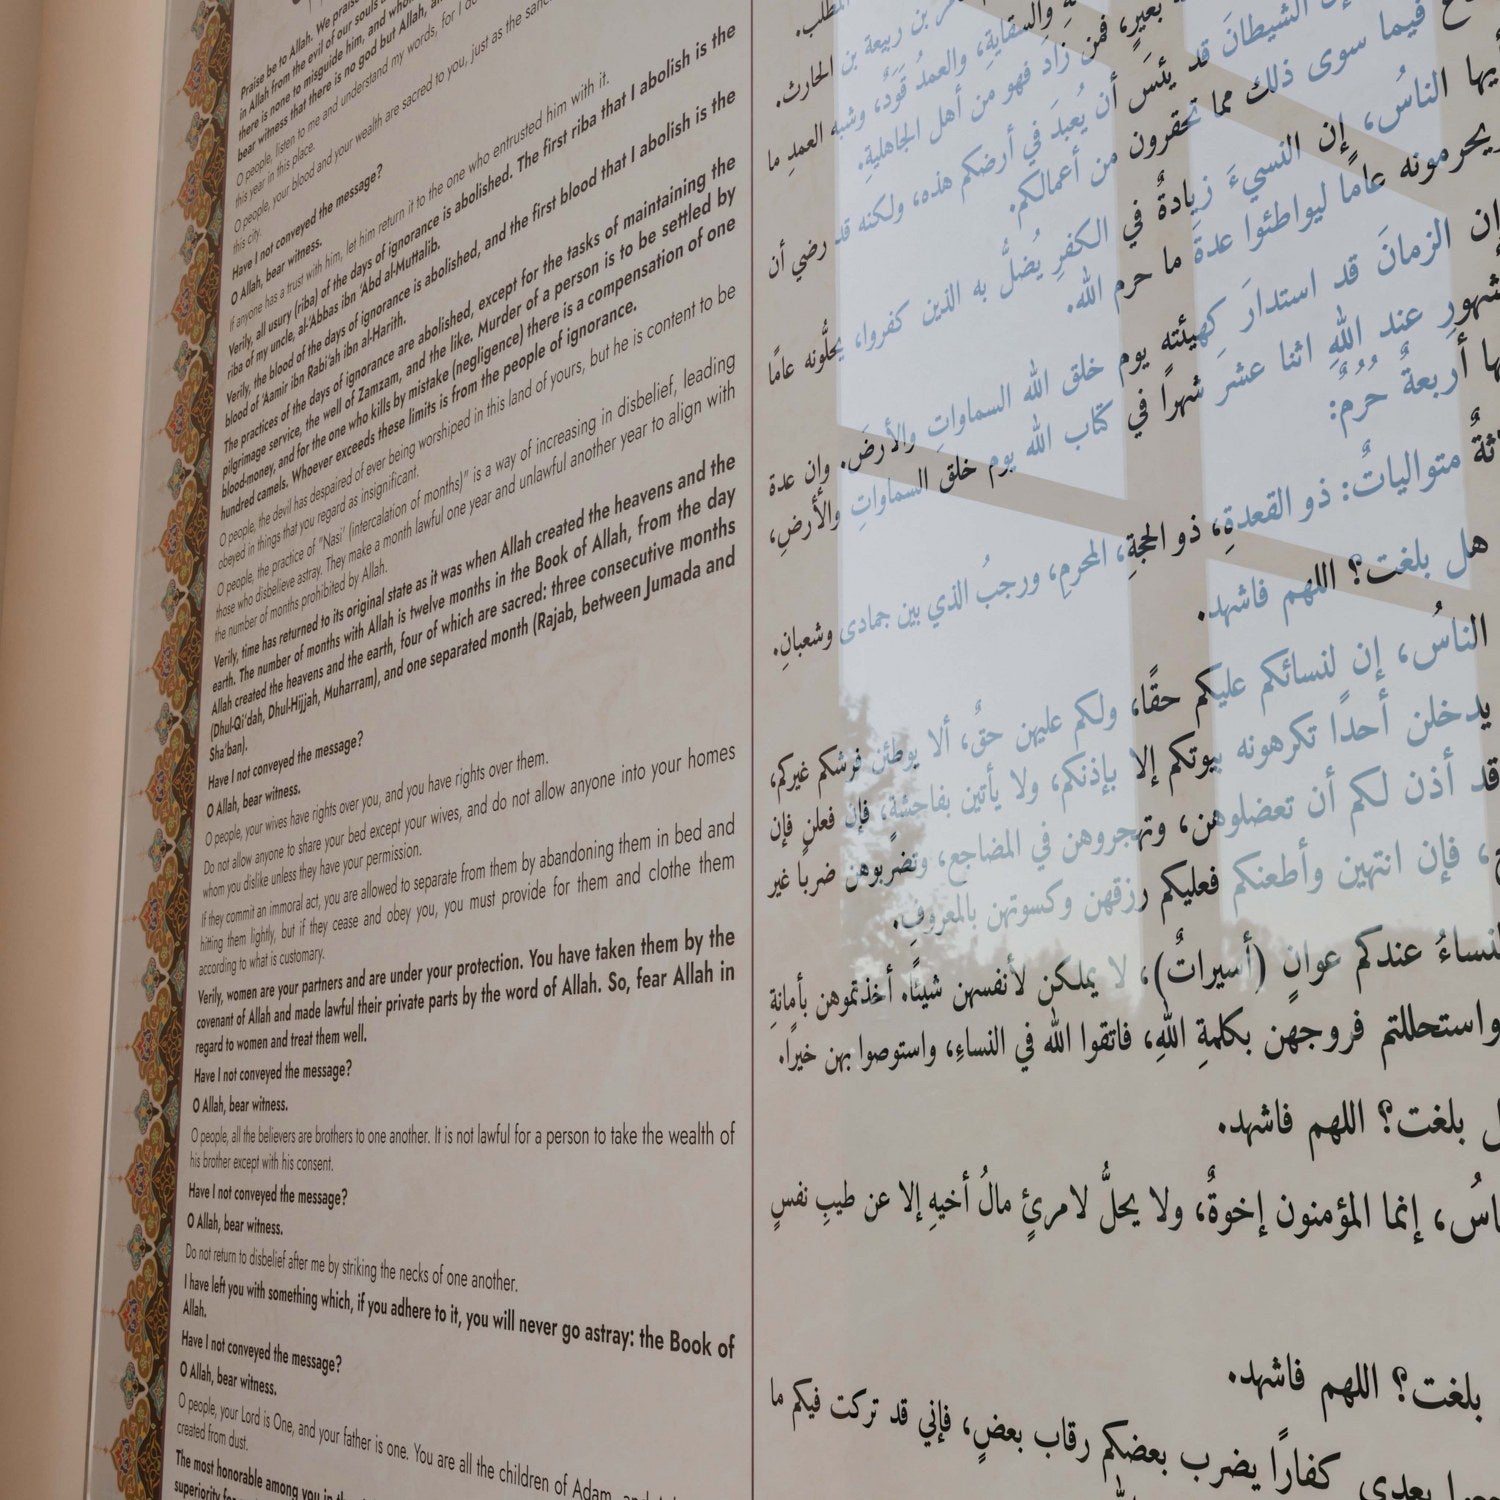 Praise be to Allah. We praise
in Allah from the evil of our souls
there is none to misguide him, and
bear witness that there is no god but Allah,
O people, listen to me and understand my words, for I do
this year in this place.
O people, your blood and your wealth are sacred to you, just as the
this city.
Have I not conveyed the message?
O Allah, bear witness.
If anyone has a trust with him, let him return it to the one who entrusted him with it.
Verily, all usury (riba) of the days of ignorance is abolished. The first riba that I abolish is the
riba of my uncle, al-'Abbas ibn 'Abd al-Muttalib.
Verily, the blood of the days of ignorance is abolished, and the first blood that I abolish is the
blood of 'Aamir ibn Rabi'ah ibn al-Harith.
The practices of the days of ignorance are abolished, except for the tasks of maintaining the
pilgrimage service, the well of Zamzam, and the like. Murder of a person is to be settled by
blood-money, and for the one who kills by mistake (negligence) there is a compensation of one
hundred camels. Whoever exceeds these limits is from the people of ignorance.
O people, the devil has despaired of ever being worshiped in this land of yours, but he is content to be
obeyed in things that you regard as insignificant.
O people, the practice of "Nasi' (intercalation of months)" is a way of increasing in disbelief, leading
those who disbelieve astray. They make a month lawful one year and unlawful another year to align with
the number of months prohibited by Allah.
Verily, time has returned to its original state as it was when Allah created the heavens and the
earth. The number of months with Allah is twelve months in the Book of Allah, from the day
Allah created the heavens and the earth, four of which are sacred: three consecutive months
(Dhul-Qi'dah, Dhul-Hijjah, Muharram), and one separated month (Rajab, between Jumada and
Sha'ban).
Have I not conveyed the message?
O Allah, bear witness.
O people, your wives have rights over you, and you have rights over them.
Do not allow anyone to share your bed except your wives, and do not allow anyone into your homes
whom you dislike unless they have your permission.
If they commit an immoral act, you are allowed to separate from them by abandoning them in bed and
hitting them lightly, but if they cease and obey you, you must provide for them and clothe them
according to what is customary.
Verily, women are your partners and are under your protection. You have taken them by the
covenant of Allah and made lawful their private parts by the word of Allah. So, fear Allah in
regard to women and treat them well.
Have I not conveyed the message?
O Allah, bear witness.
O people, all the believers are brothers to one another. It is not lawful for a person to take the wealth of
his brother except with his consent.
Have I not conveyed the message?
O Allah, bear witness.
Do not return to disbelief after me by striking the necks of one another.
I have left you with something which, if you adhere to it, you will never go astray: the Book of
Allah.
Have I not conveyed the message?
O Allah, bear witness.
O people, your Lord is One, and your father is one. You are all the children of Adam,
created from dust.
The most honorable among you in
المطلب.
بن ربيعة بن الحارث.
والسقايةِ، والعمدُ قَوَدٌ، وشبه العمدِ ما
بعيرٍ، فمن زادَ فهو من أهل الجاهليةِ.
الشيطانَ قد يئسَ أن يُعبدَ في أرضكم هذه، ولكنه قد رضي أن
فيما سوى ذلك مما تحقرون من أعمالكم.
الناسُ، إن النسيءَ زيادةٌ في الكفرِ يُضلُّ به الذين كفروا، يحلُّونه عامًا
ويحرمونه عامًا ليواطئوا عدةَ ما حرم الله.
إن الزمانَ قد استدارَ كهيئته يوم خلق الله السماواتِ والأرضَ. وإن عدة
عند اللهِ اثنا عشرَ شهرًا في كتاب الله يوم خلق السماواتِ والأرضِ،
أربعةٌ حُرُمٌ:
متوالياتٌ: ذو القعدةِ، ذو الحجةِ، المحرم، ورجبُ الذي بين جمادى وشعبان.
هل بلغت؟ اللهم فاشهد.
الناسُ، إن لنسائكم عليكم حقًا، ولكم عليهن حقٌ، ألا يوطئن فرشكم غيركم،
يدخلن أحدًا تكرهونه بيوتكم إلا بإذنكم، ولا يأتين بفاحشةٍ، فإن فعلن فإن
قد أذن لكم أن تعضلوهن، وتهجروهن في المضاجع، وتضربوهن ضربًا غير
فإن انتهين وأطعنكم فعليكم رزقهن وكسوتهن بالمعروفِ.
عندكم عوانٍ (أسيراتٌ)، لا يملكن لأنفسهن شيئًا. أخذتموهن بأمانةِ
واستحللتم فروجهن بكلمةِ اللهِ، فاتقوا الله في النساءِ، واستوصوا بهن خيرًا.
بلغت؟ اللهم فاشهد.
إنما المؤمنون إخوةٌ، ولا يحلُّ لامرئٍ مالُ أخيهِ إلا عن طيبِ نفسٍ
بلغت؟ اللهم فاشهد.
بعدي كفارًا يضرب بعضكم رقاب بعضٍ، فإني قد تركت فيكم ما